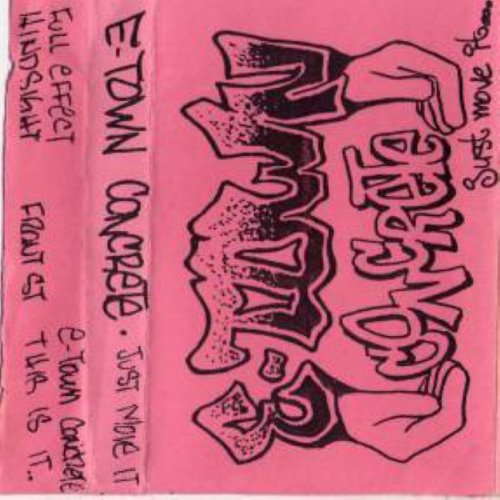 E-TOWN
CONCRETE
Just move it...
E-TOWN CONCRETE · JUST MOVE IT
FULL EFFECT E-Town Concrete
HINDSIGHT FRONT ST IS IT..